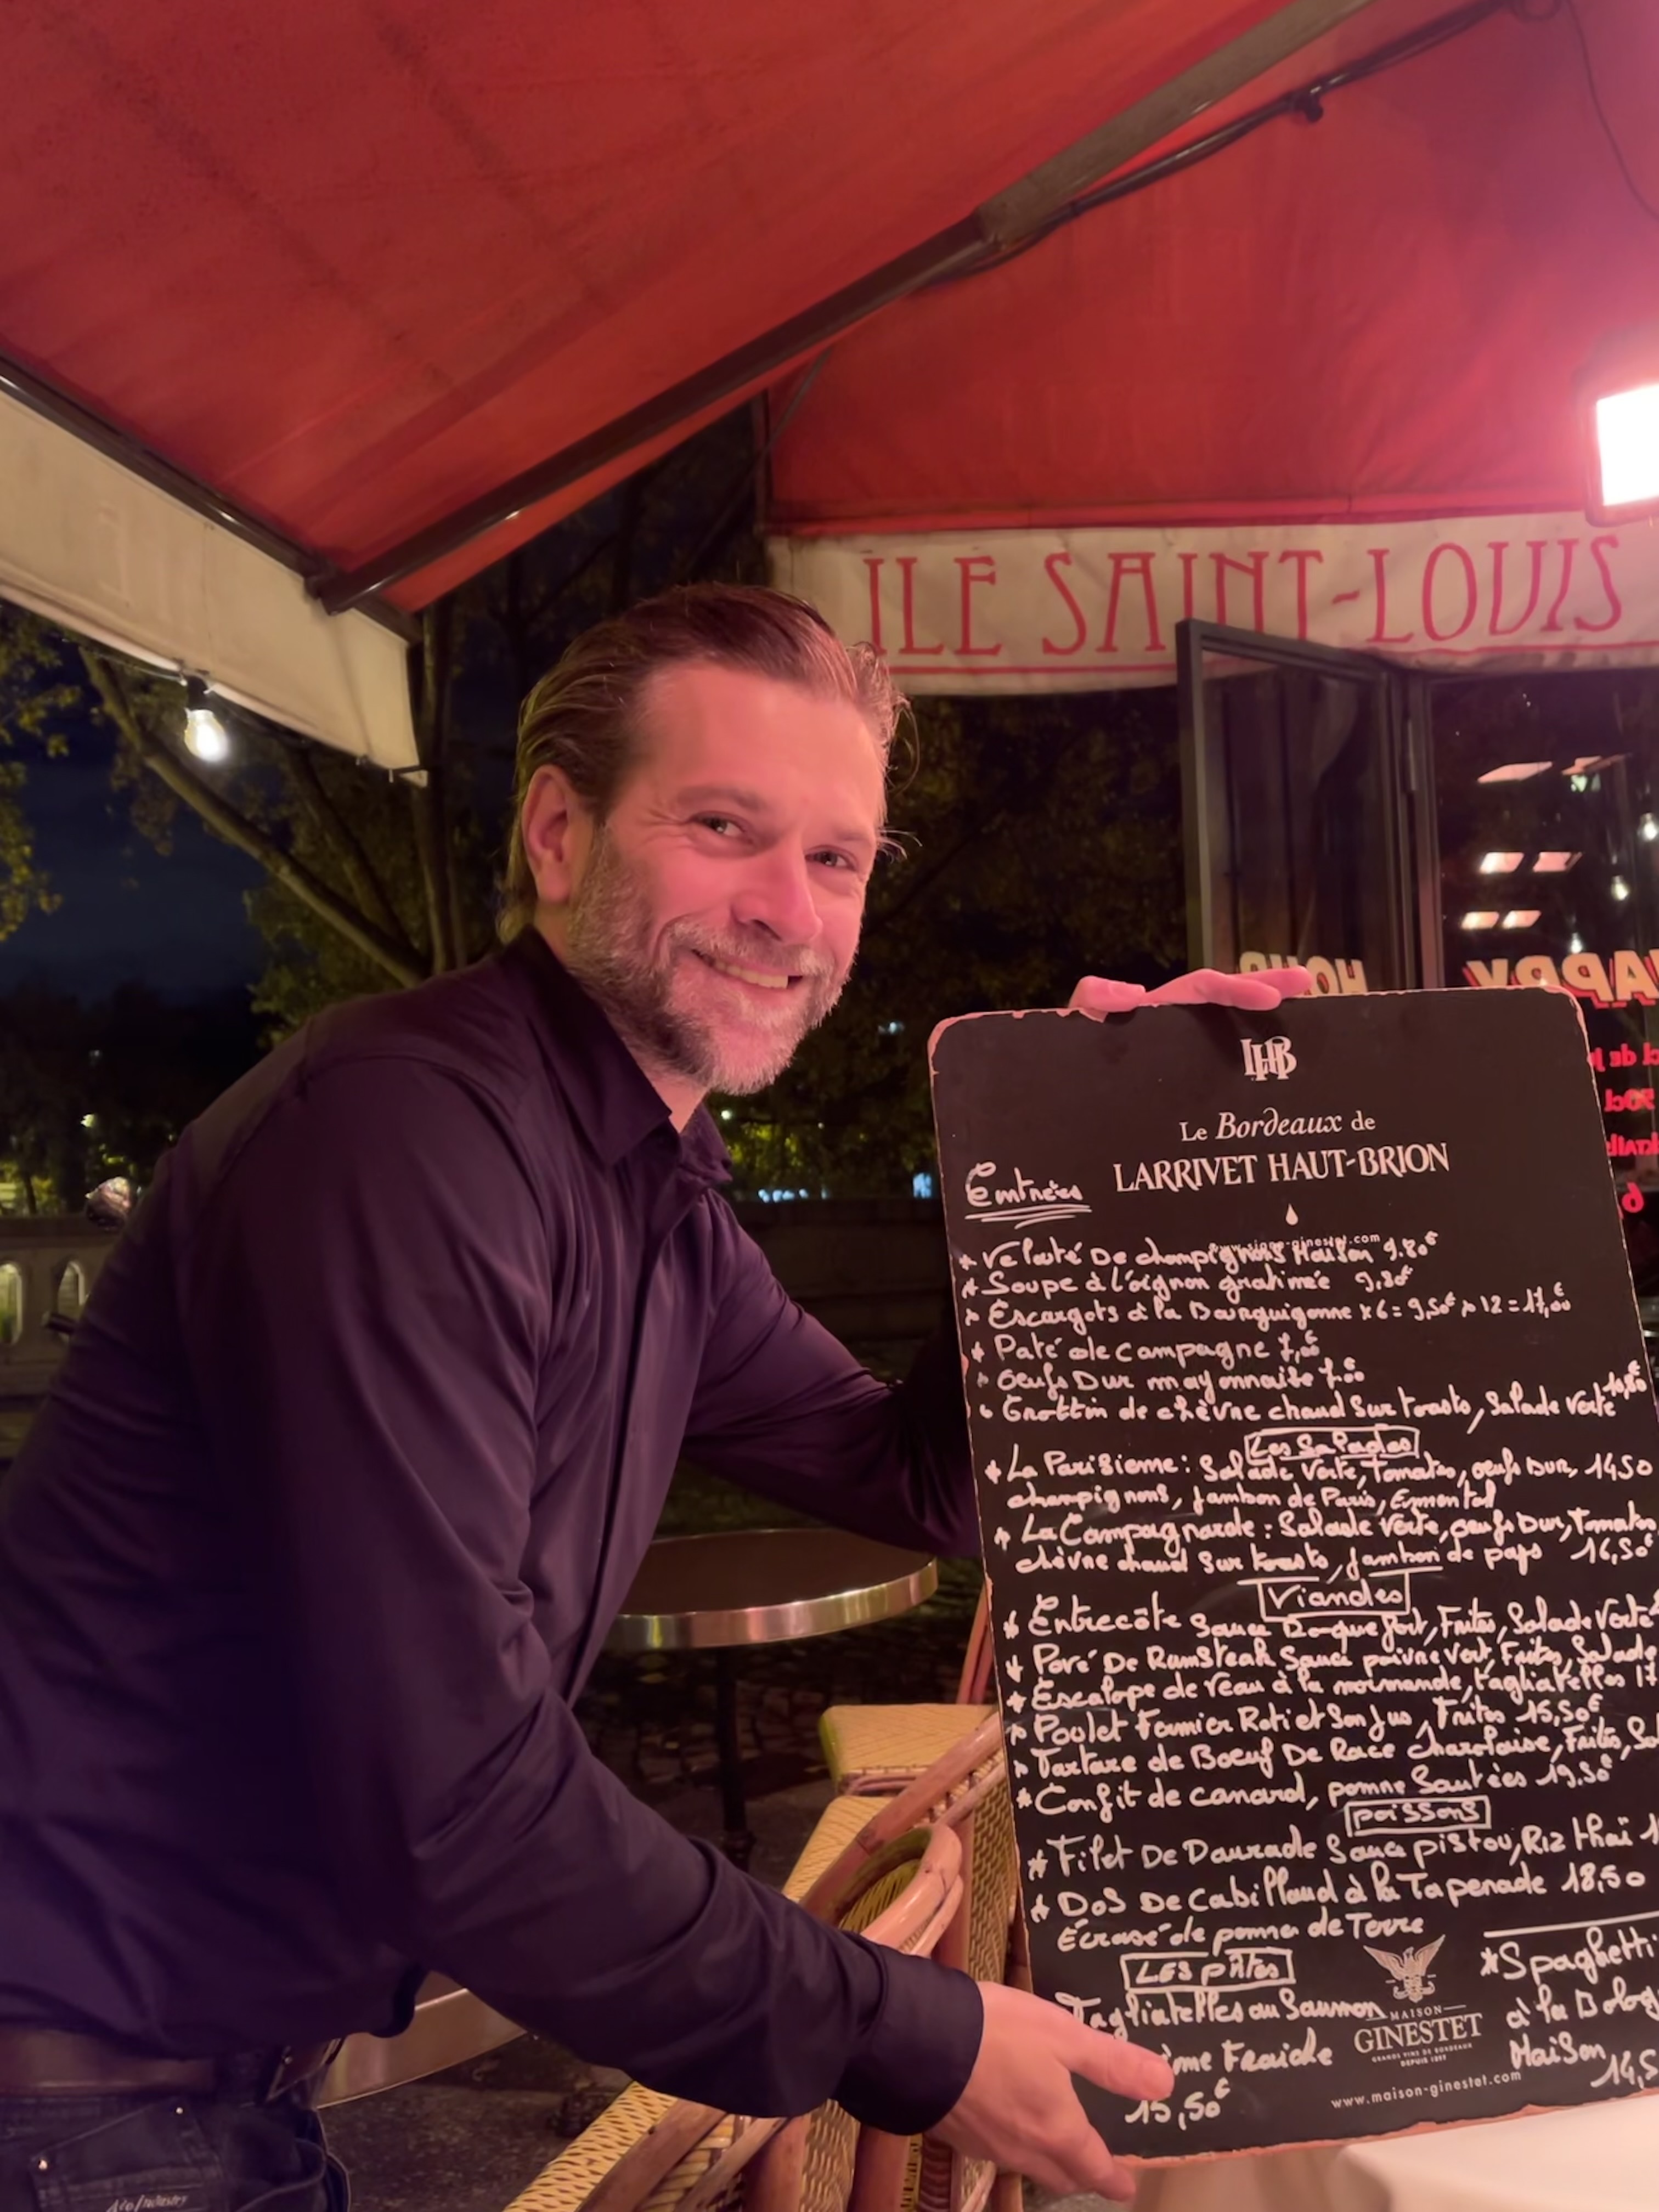 ILE SAINT-LOUIS
HAPPY HOUR
LHB
Le Bordeaux de
LARRIVET HAUT-BRION
Entrées
* Velouté De champignons Maison 9.80€
* Soupe à l'oignon gratinée 9,80€
* Escargots à la Bourguigonne x6 = 9,50€ x 12 = 17,00€
* Paté de campagne 7,00€
* Oeufs Dur mayonnaise 7.00
* Crottin de chèvre chaud Sur toasts, Salade Verte 10,80€
Les Salades
* La Parisienne : Salade Verte, Tomates, oeufs Dur, 14,50
champignons, Jambon de Paris, Emmental
* La Campagnarde : Salade Verte, oeufs Dur, Tomates
chèvre chaud Sur toasts, jambon de pays 16,50€
Viandes
* Entrecôte Sauce Roquefort, Frites, Salade Verte
* Pavé De Rumsteak Sauce poivre Vert, Frites, Salade
* Escalope de Veau à la normande, tagliatelles 17
* Poulet Fermier Roti et Son Jus, Frites 15,50€
* Tartare de Boeuf De Race Charolaise, Frites, Sal
* Confit de canard, pomme Sautées 19.50€
poissons
* Filet De Daurade Sauce pistou, Riz thaï 1
* DoS De Cabillaud à la Tapenade 18,50
Écrasé de pomme de Terre
LES pâtes
Tagliatelles au Saumon
Fraiche
15,50€
* Spaghetti
à la Bolog
Maison
14,5
MAISON
GINESTET
GRANDS VINS DE BORDEAUX
DEPUIS 1897
www.maison-ginestet.com